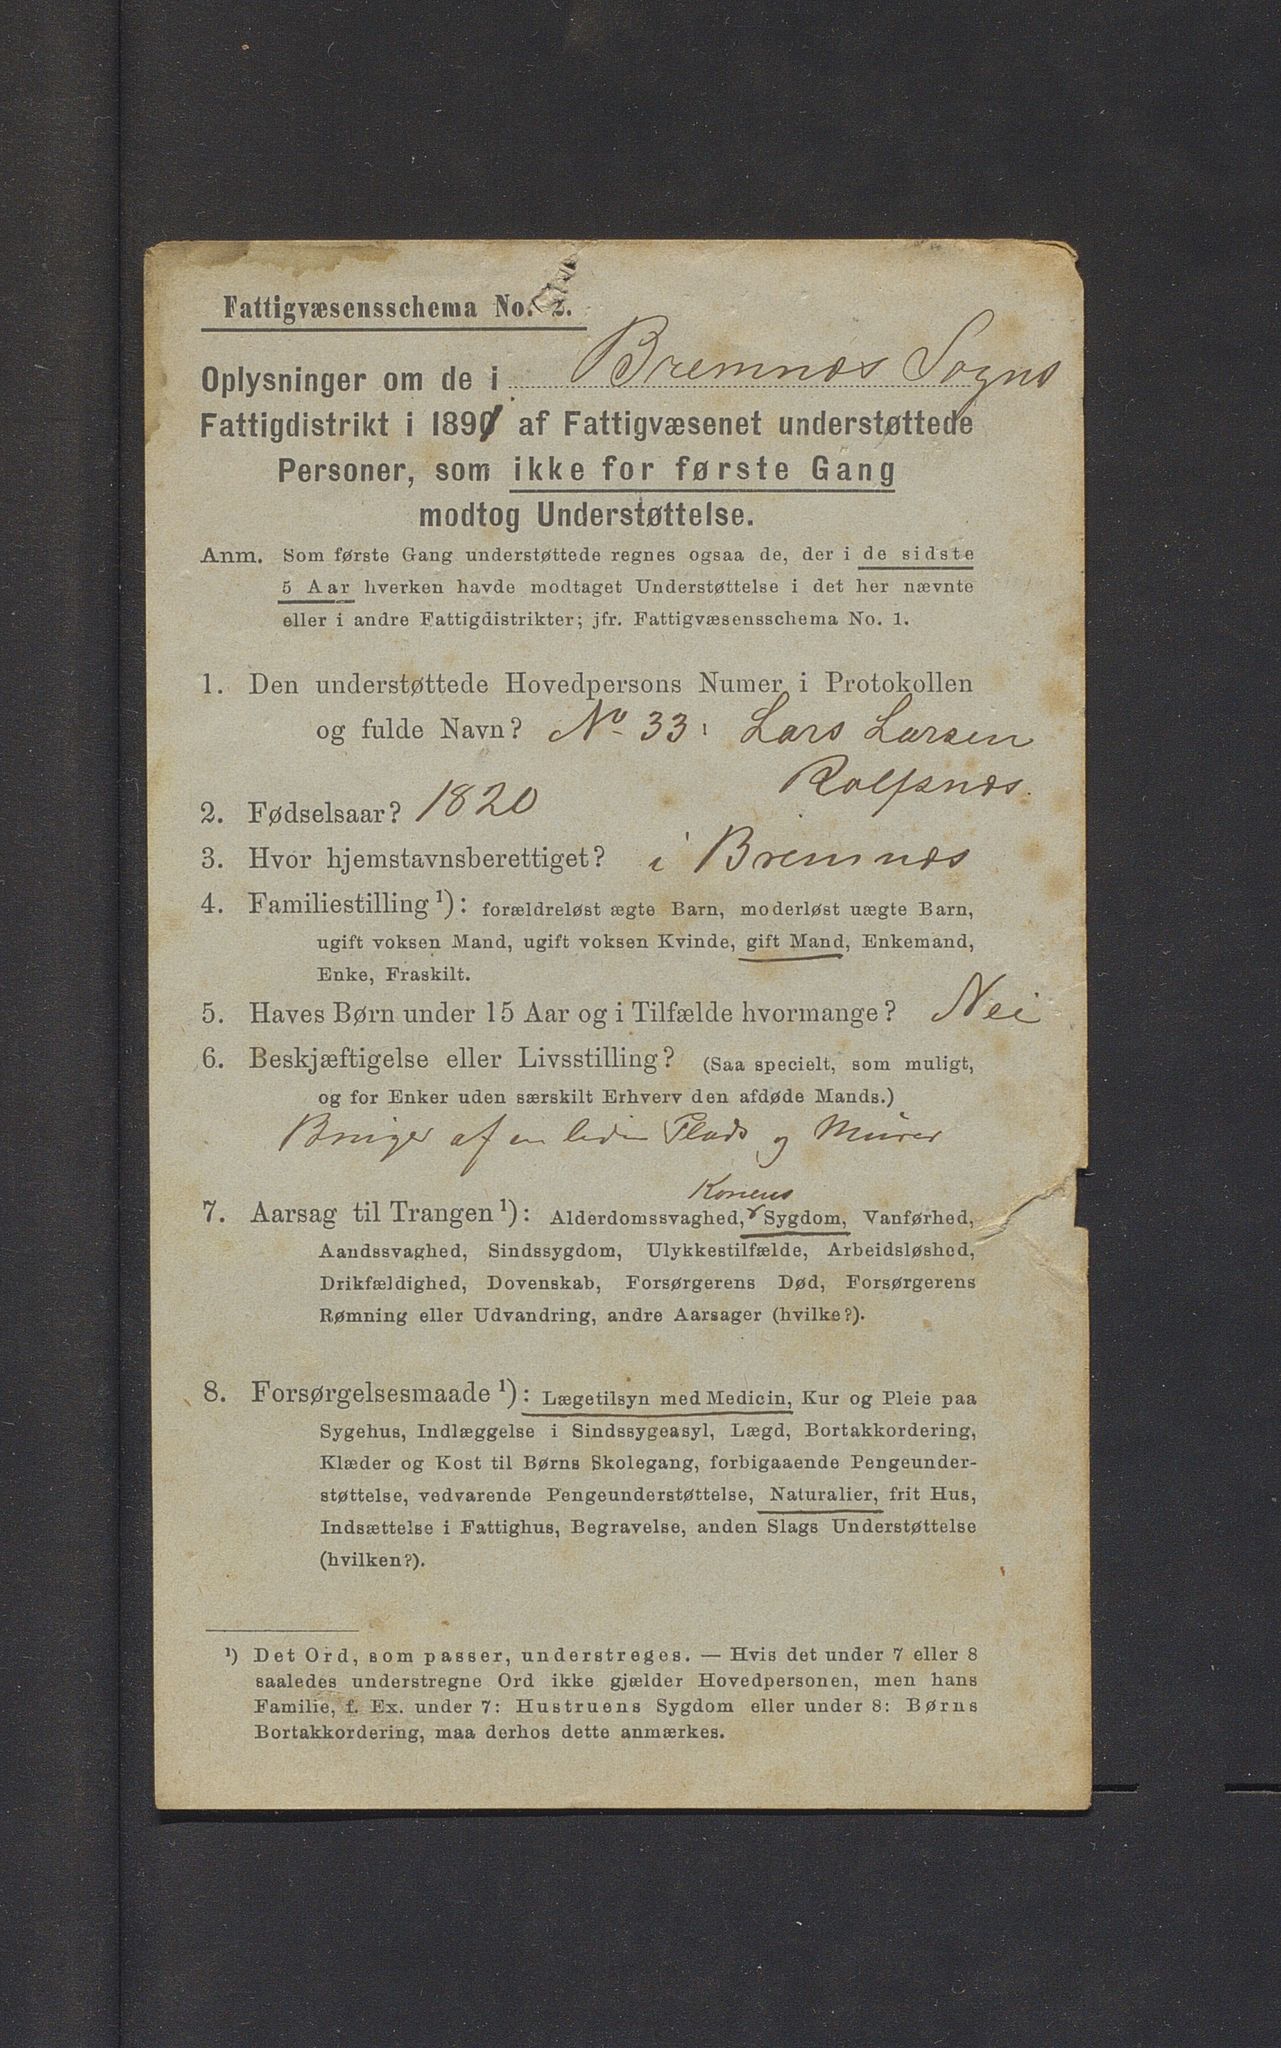 Fattigvæsensschema No. 2.
Oplysninger om de i Bremnæs Sogns
Fattigdistrikt i 1891 af Fattigvæsenet understøttede
Personer, som ikke for første Gang
modtog Understøttelse.
Anm. Som første Gang understøttede regnes ogsaa de, der i de sidste
5 Aar hverken havde modtaget Understøttelse i det her nævnte
eller i andre Fattigdistrikter; jfr. Fattigvæsensschema No. 1.
1. Den understøttede Hovedpersons Numer i Protokollen
og fulde Navn? No 33: Lars Larsen
Rolfsnæs.
2. Fødselsaar? 1820
3. Hvor hjemstavnsberettiget? i Bremnæs
4. Familiestilling ¹): forældreløst ægte Barn, moderløst uægte Barn,
ugift voksen Mand, ugift voksen Kvinde, gift Mand, Enkemand,
Enke, Fraskilt.
5. Haves Børn under 15 Aar og i Tilfælde hvormange? Nei
6. Beskjæftigelse eller Livsstilling? (Saa specielt, som muligt,
og for Enker uden særskilt Erhverv den afdøde Mands.)
Bruger af en liden Plads og Murer
Konens
7. Aarsag til Trangen ¹): Alderdomssvaghed, Sygdom, Vanførhed,
Aandssvaghed, Sindssygdom, Ulykkestilfælde, Arbeidsløshed,
Drikfældighed, Dovenskab, Forsørgerens Død, Forsørgerens
Rømning eller Udvandring, andre Aarsager (hvilke?).
8. Forsørgelsesmaade ¹): Lægetilsyn med Medicin, Kur og Pleie paa
Sygehus, Indlæggelse i Sindssygeasyl, Lægd, Bortakkordering,
Klæder og Kost til Børns Skolegang, forbigaaende Pengeunder-
støttelse, vedvarende Pengeunderstøttelse, Naturalier, frit Hus,
Indsættelse i Fattighus, Begravelse, anden Slags Understøttelse
(hvilken?).
¹) Det Ord, som passer, understreges. — Hvis det under 7 eller 8
saaledes understregne Ord ikke gjælder Hovedpersonen, men hans
Familie, f. Ex. under 7: Hustruens Sygdom eller under 8: Børns
Bortakkordering, maa derhos dette anmærkes.